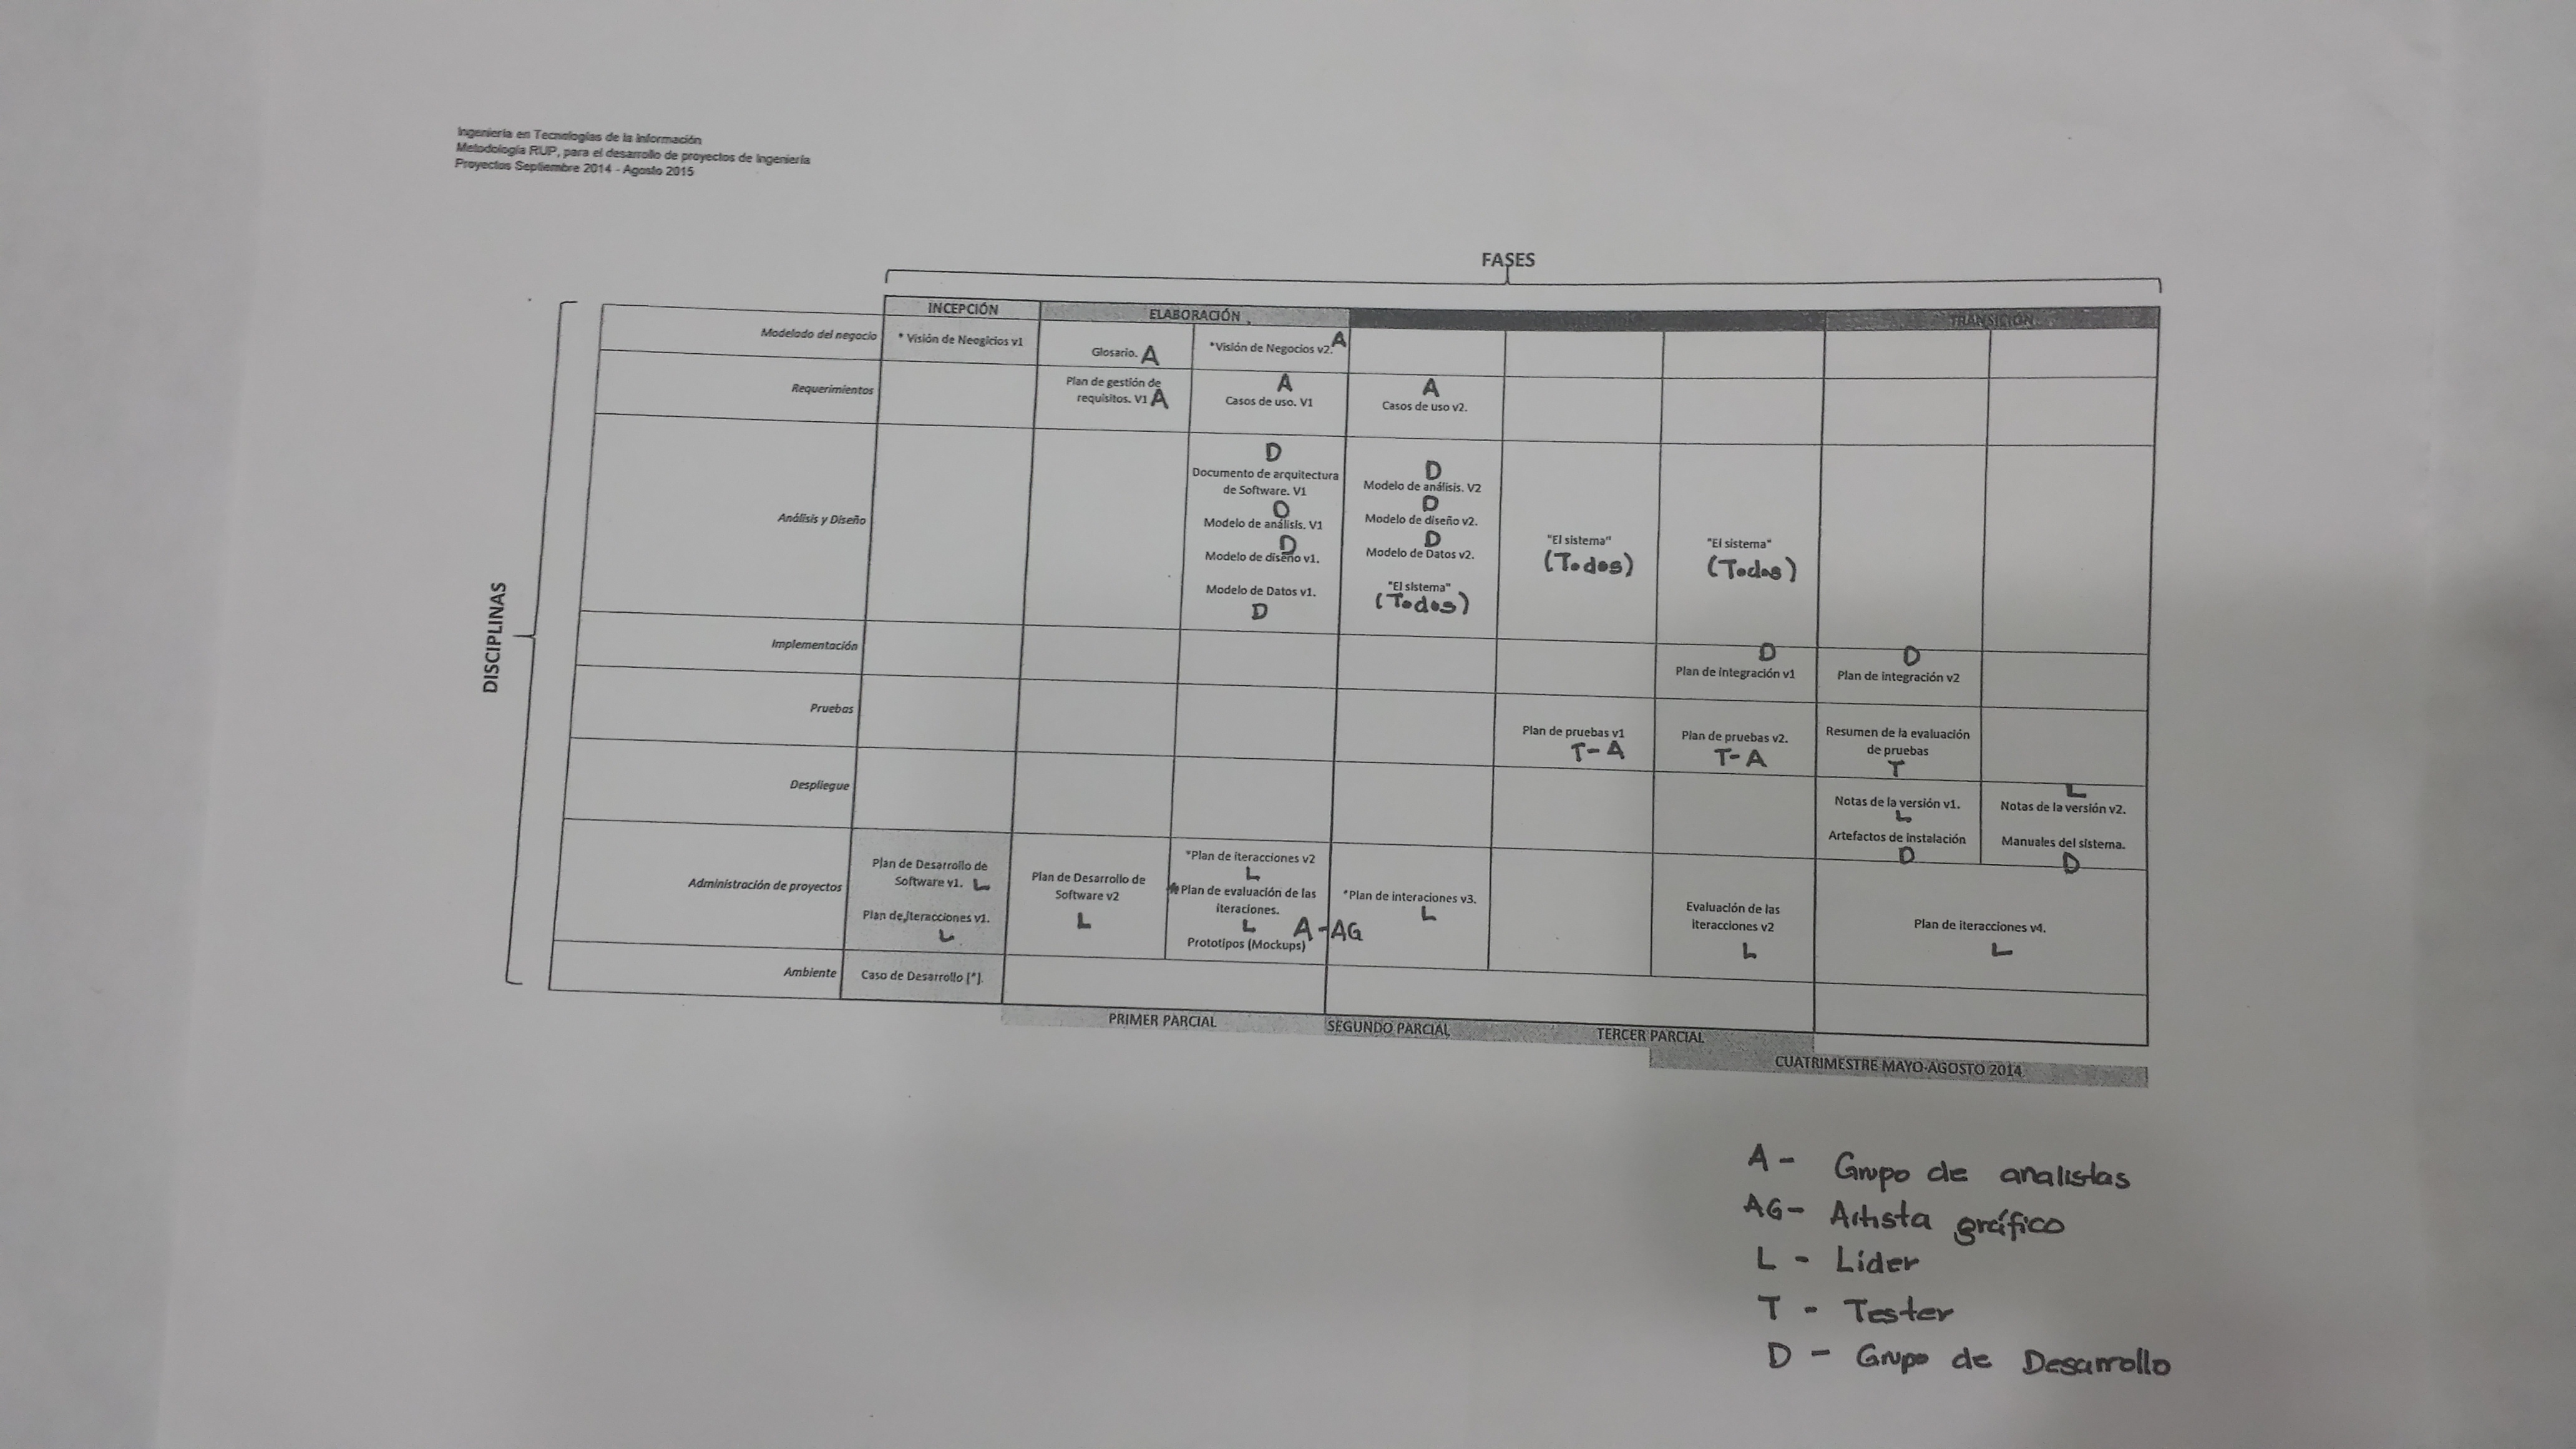 Ingeniería en Tecnologías de la Información
Metodología RUP, para el desarrollo de proyectos de Ingeniería
Proyectos Septiembre 2014 - Agosto 2015
FASES
DISCIPLINAS
INCEPCIÓN
ELABORACIÓN
TRANSICIÓN
Modelado del negocio
* Visión de Neogicios v1
Glosario. A
*Visión de Negocios v2. A
Requerimientos
Plan de gestión de
requisitos. V1 A
A
Casos de uso. V1
A
Casos de uso v2.
Análisis y Diseño
D
Documento de arquitectura
de Software. V1
D
Modelo de análisis. V1
D
Modelo de diseño v1.
Modelo de Datos v1.
D
D
Modelo de análisis. V2
D
Modelo de diseño v2.
D
Modelo de Datos v2.
"El sistema"
(Todos)
"El sistema"
(Todos)
"El sistema"
(Todos)
Implementación
D
Plan de integración v1
D
Plan de integración v2
Pruebas
Plan de pruebas v1
T-A
Plan de pruebas v2.
T-A
Resumen de la evaluación
de pruebas
T
Despliegue
Notas de la versión v1.
L
Artefactos de instalación
D
L
Notas de la versión v2.
Manuales del sistema.
D
Administración de proyectos
Plan de Desarrollo de
Software v1. L
Plan de Iteracciones v1.
L
Plan de Desarrollo de
Software v2
L
*Plan de iteracciones v2
L
*Plan de evaluación de las
iteraciones.
L A-AG
Prototipos (Mockups)
*Plan de interaciones v3.
L
Evaluación de las
iteracciones v2
L
Plan de iteracciones v4.
L
Ambiente
Caso de Desarrollo [*].
PRIMER PARCIAL
SEGUNDO PARCIAL
TERCER PARCIAL
CUATRIMESTRE MAYO-AGOSTO 2014
A - Grupo de analistas
AG - Artista gráfico
L - Líder
T - Tester
D - Grupo de Desarrollo